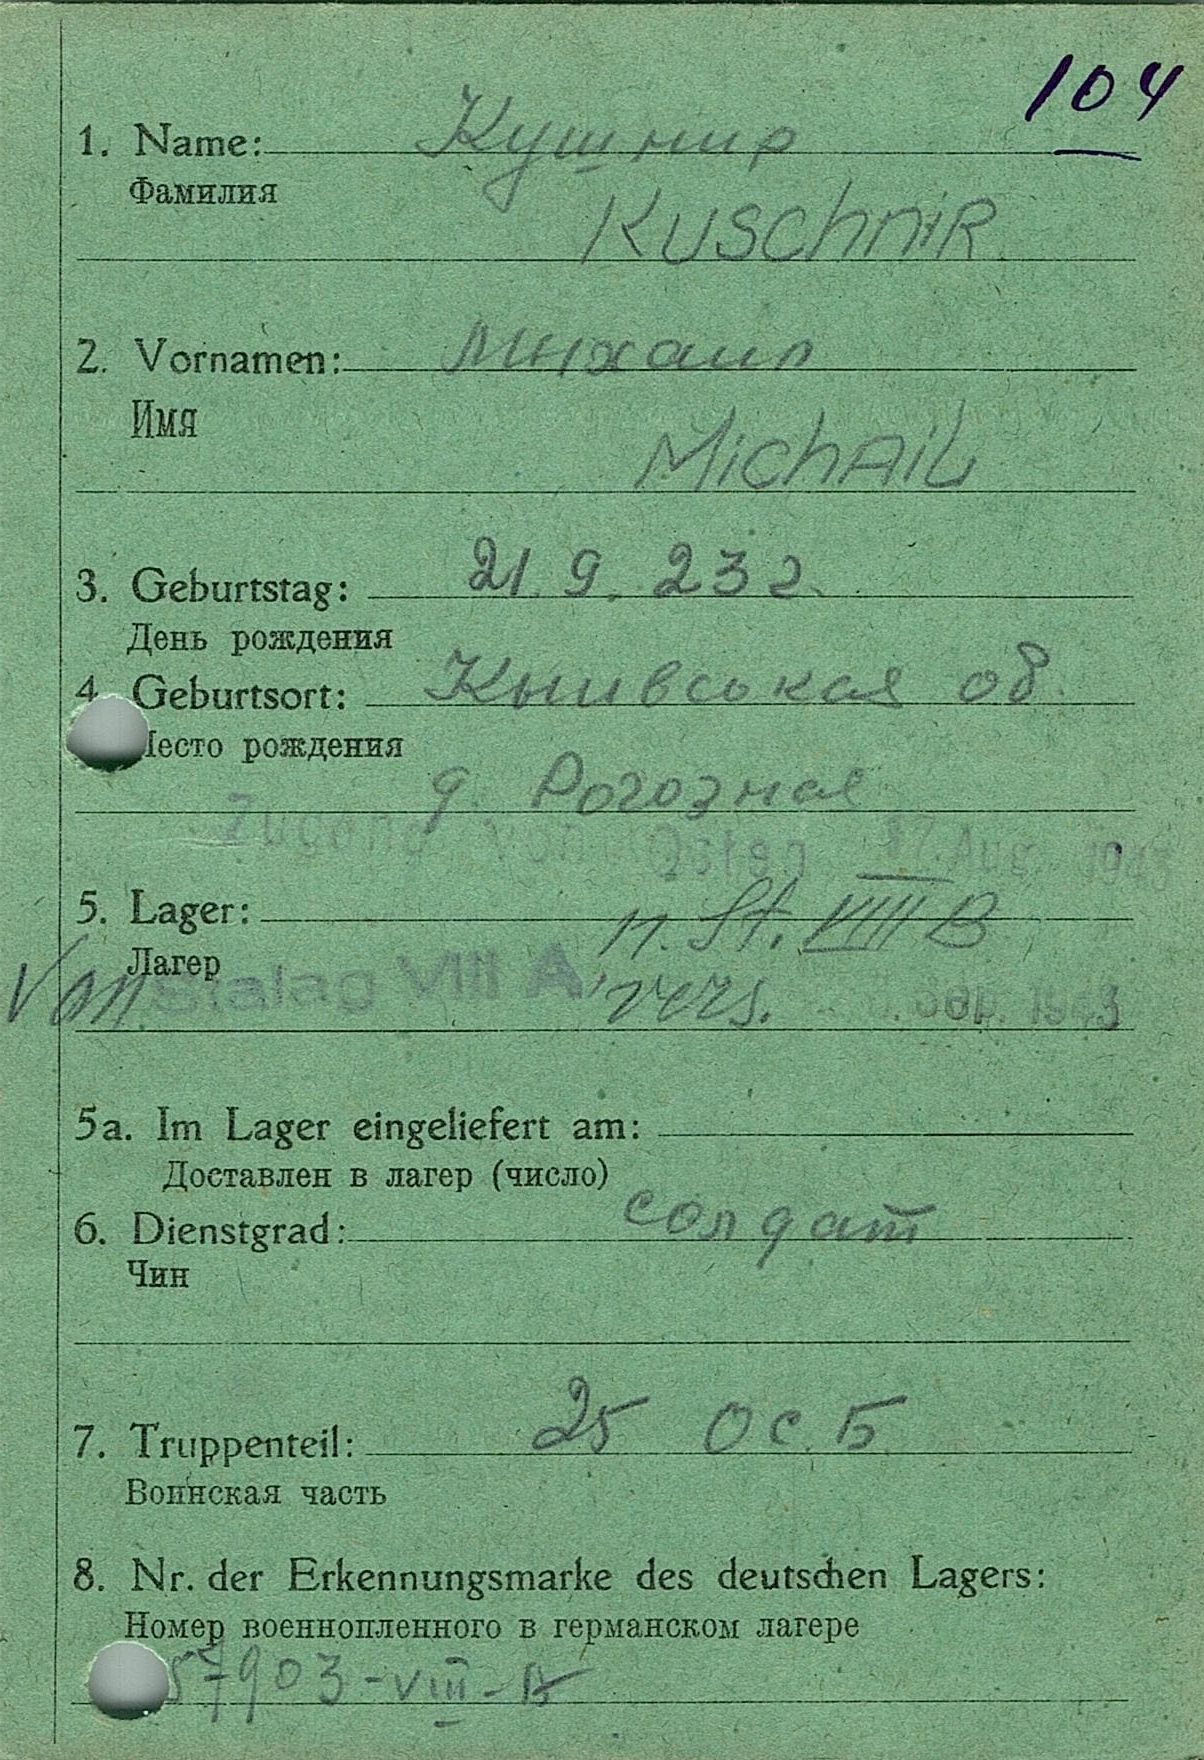 104
1. Name: Кушнир
Фамилия
KUSCHNIR
2. Vornamen: Михаил
Имя
MICHAIL
3. Geburtstag: 21.9.23г.
День рождения
4. Geburtsort: Кыивськая об.
Место рождения
д. Рогозная
Zugang von Osten 17. Aug. 1943
5. Lager: n. St. VIII B
Лагер
Von Stalag VIII A, vers. Sep. 1943
5a. Im Lager eingeliefert am:
Доставлен в лагер (число)
6. Dienstgrad: солдат
Чин
7. Truppenteil: 25 ОС.Б
Воинская часть
8. Nr. der Erkennungsmarke des deutschen Lagers:
Номер военнопленного в германском лагере
57903-VIII-